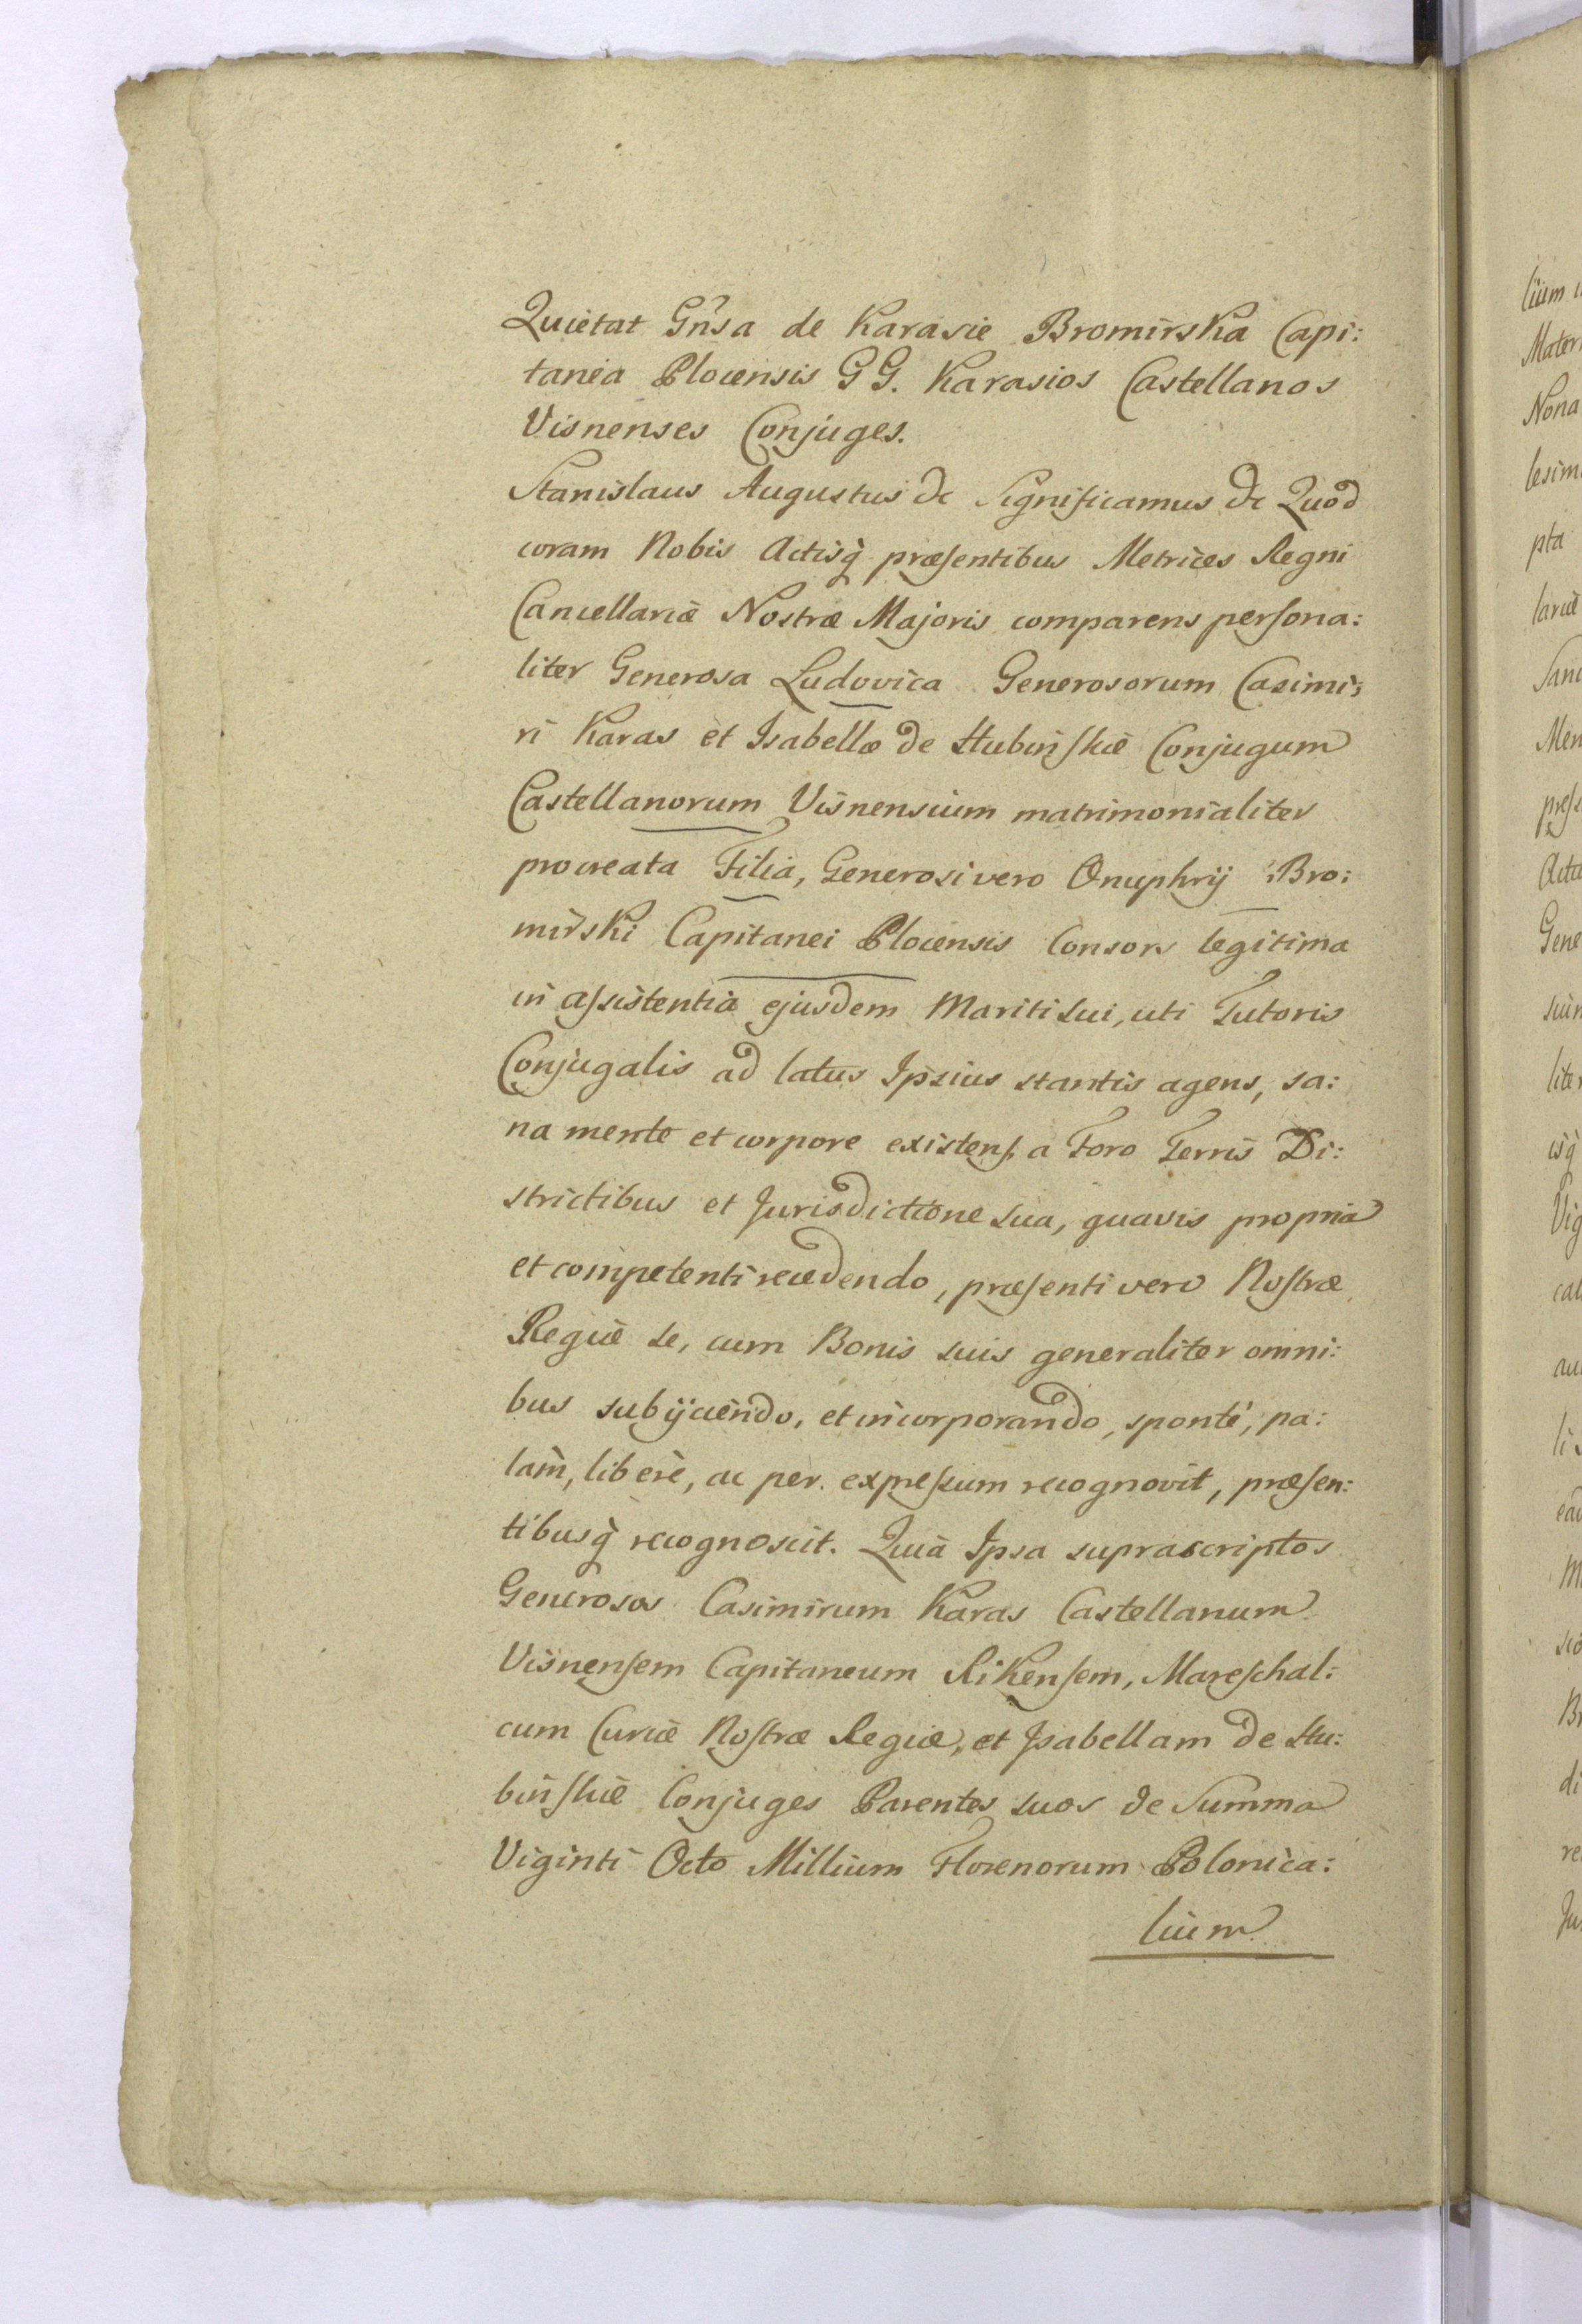 Quietat Gn̄sa de Karasie Bromirska Capi:
tanea Plocensis GG. Karasios Castellanos
Visnenses Conjuges.
Stanislaus Augustus &c Significamus &c Quod
coram Nobis Actisq̀ præsentibus Metrices Regni
Cancellariæ Nostræ Majoris comparens persona:
liter Generosa Ludovica Generosorum Casimi:
ri Karas et Isabellæ de Hubinskie Conjugum
Castellanorum Visnensium matrimonialiter
procreata Filia, Generosi vero Onuphrij Bro:
mirski Capitanei Plocensis Consors legitima
in assistentia ejusdem Mariti sui, uti Tutoris
Conjugalis ad latus Ipsius stantis agens, sa:
na mente et corpore existens, a Foro Terris Di:
strictibus et Jurisdictione sua, quavis propria
et competenti recedendo, præsenti vero Nostræ
Regiæ se, cum Bonis suis generaliter omni:
bus subijciendo, et incorporando, sponté, pa:
lam̀, liberè, ac per expressum recognovit, præsen:
tibusq̀ recognoscit. Quià Ipsa suprascriptos
Generosos Casimirum Karas Castellanum
Visnensem Capitaneum Rikensem, Mareschal:
cum Curiæ Nostræ Regiæ, et Isabellam de Hu:
binskie Conjuges Parentes suos de Summa
Viginti Octo Millium Florenorum Polonica:
lium
lium
Mater
Nona
pta
Gene